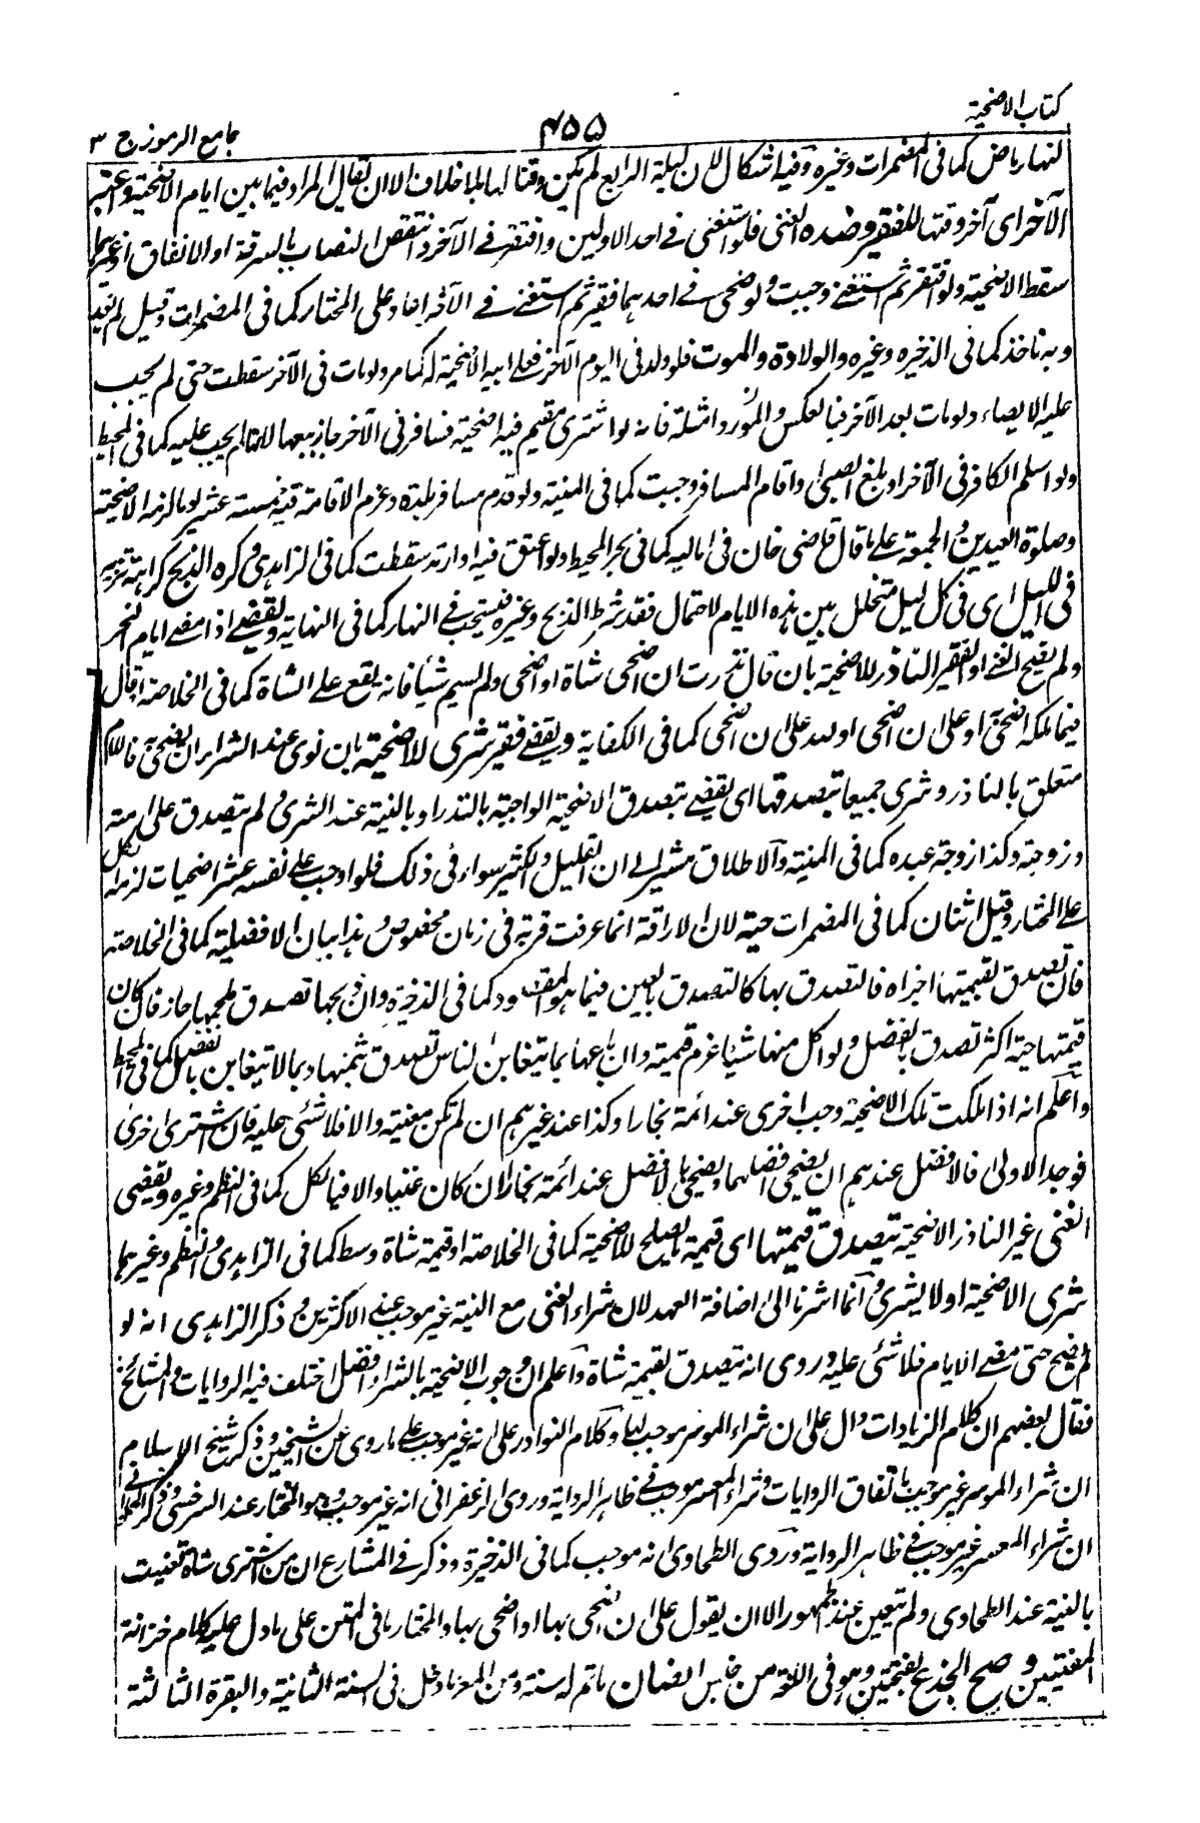 كتاب الاضحية
٤٥٥
جامع الرموز ج ٣
النهار ماض كما فى المضمرات وغيره وفيه اشكال لان ليلة الرابع لم تكن وقتا لها بلا خلاف الا ان يقال المراد فيما بين ايام الاضحية واعتبر
الآخر اى آخر وقتها للفقير وضده الغنى فلو استغنى فى احد الاولين وافتقر فى الآخر وانتقص النصاب بالسرقة او الانفاق او غيرهما
سقط الاضحية ولو افتقر ثم استغنى وجبت ولو ضحى فى احدهما فقير ثم استغنى فى الآخر اعاد على المختار كما فى المضمرات وقيل لم يعد
وبه ناخذ كما فى الذخيره وغيره والولادة والموت فلو ولد فى اليوم الآخر فعلى ابيه الاضحية له كما مر ولو مات فى الآخر سقطت حتى لم يجب
عليه الايصاء ولو مات بعد الآخر فبالعكس والمورد امثلة فانه لو اشترى مقيم فيه اضحية فسافر فى الآخر جاز بيعها لانها لم يجب عليه كما فى المحيط
ولو اسلم الكافر فى الآخر او بلغ الصبى او اقام المسافر وجبت كما فى المنية ولو قدم مسافر بلدة وعزم الاقامة فيه خمسة عشر يوما لزمه الاضحية
وصلوة العيدين والجمعة على ما قال قاضى خان فى اماليه كما فى بحر المحيط ولو اعتق فيه او ارتد سقطت كما فى الزاهدى وكره الذبح كراهة تنزيه
فى الليل اى فى كل ليل متخلل بين هذه الايام لاحتمال فقد شرط الذبح وغيره فيستحب فى النهار كما فى النهاية ويقضى اذا مضى ايام النحر
ولم يضح الغنى او الفقير الناذر للاضحية بان قال نذرت ان اضحى شاة او اضحى ولم يسم شيئا فانه يقع على الشاة كما فى الخلاصة او قال
فيما ملكه اضحية او على ان اضحى او لله على ان اضحى كما فى الكفاية ويقضى فقير شرى للاضحية بان نوى عند الشراء ان يضحى به فاللام
متعلق بالناذر وشرى جميعا بتصدقها اى يقضى بتصدق الاضحية الواجبة بالنذر او بالنية عند الشرى ولم يتصدق على ابنته
وزوجته وكذا زوجة عبده كما فى المنية والاطلاق مشير الى ان القليل والكثير سواء فى ذلك فلو اوجب على نفسه عشر اضحيات لزمه الكل
على المختار وقيل اثنان كما فى المضمرات حية لان الاراقة انما عرفت قربة فى زمان مخصوص وهذا بيان الافضلية كما فى الخلاصة
فان تصدق بقيمتها اجزاه فالتصدق بها كالتصدق بالعين فيما هو المقصود كما فى الذخيرة وان ذبحها تصدق بلحمها جاز فان كان
قيمتها حية اكثر تصدق بالفضل ولو اكل منها شيئا غرم قيمته وان باعها بما يتغابن الناس تصدق بثمنها وبما لا يتغابن بالفضل كما فى المحيط
واعلم انه اذا هلكت تلك الاضحية وجب اخرى عند ائمة بخارا وكذا عند غيرهم ان لم تكن معينة والا فلا شئ عليه فان اشترى اخرى
فوجد الاولى فالافضل عندهم ان يضحى افضلهما ويضحى بالافضل عند ائمة بخارا ان كان غنيا والا فبالكل كما فى النظم وغيره ويقضى
الغنى غير الناذر الاضحية بتصدق قيمتها اى قيمة ما يصلح للاضحية كما فى الخلاصة او قيمة شاة وسط كما فى الزاهدى والنظم وغيرهما
شرى الاضحية او لا يشرى وانما اشرنا الى اضافة العهد لان شراء الغنى مع النية غير موجب عند الاكثرين وذكر الزاهدى انه لو
لم يضح حتى مضى الايام فلا شئ عليه وروى انه يتصدق بقيمة شاة واعلم ان وجوب الاضحية بالشراء فصل اختلف فيه الروايات والمشائخ
فقال بعضهم ان كلام الزيادات دال على ان شراء الموسر موجب لها وكلام النوادر على انه غير موجب على ما روى عن الشيخين وذكر شيخ الاسلام
ان شراء الموسر غير موجب باتفاق الروايات وشراء المعسر موجب فى ظاهر الرواية وروى الزعفرانى انه غير موجب وهو المختار عند السرخسى وذكر الحلوانى
ان شراء المعسر غير موجب فى ظاهر الرواية وروى الطحاوى انه موجب كما فى الذخيرة وذكر فى المشارع ان من اشترى شاة تعينت
بالنية عند الطحاوى ولم تتعين عند الجمهور الا ان يقول على ان اضحى بها او اضحى بها والمختار ما فى المتن على ما دل عليه كلام خزانة
المفتيين وصح الجذع بفتحتين وهو فى اللغة من جنس الضان ما تم له سنة ومن المعز ما دخل فى السنة الثانية والبقرة الثالثة